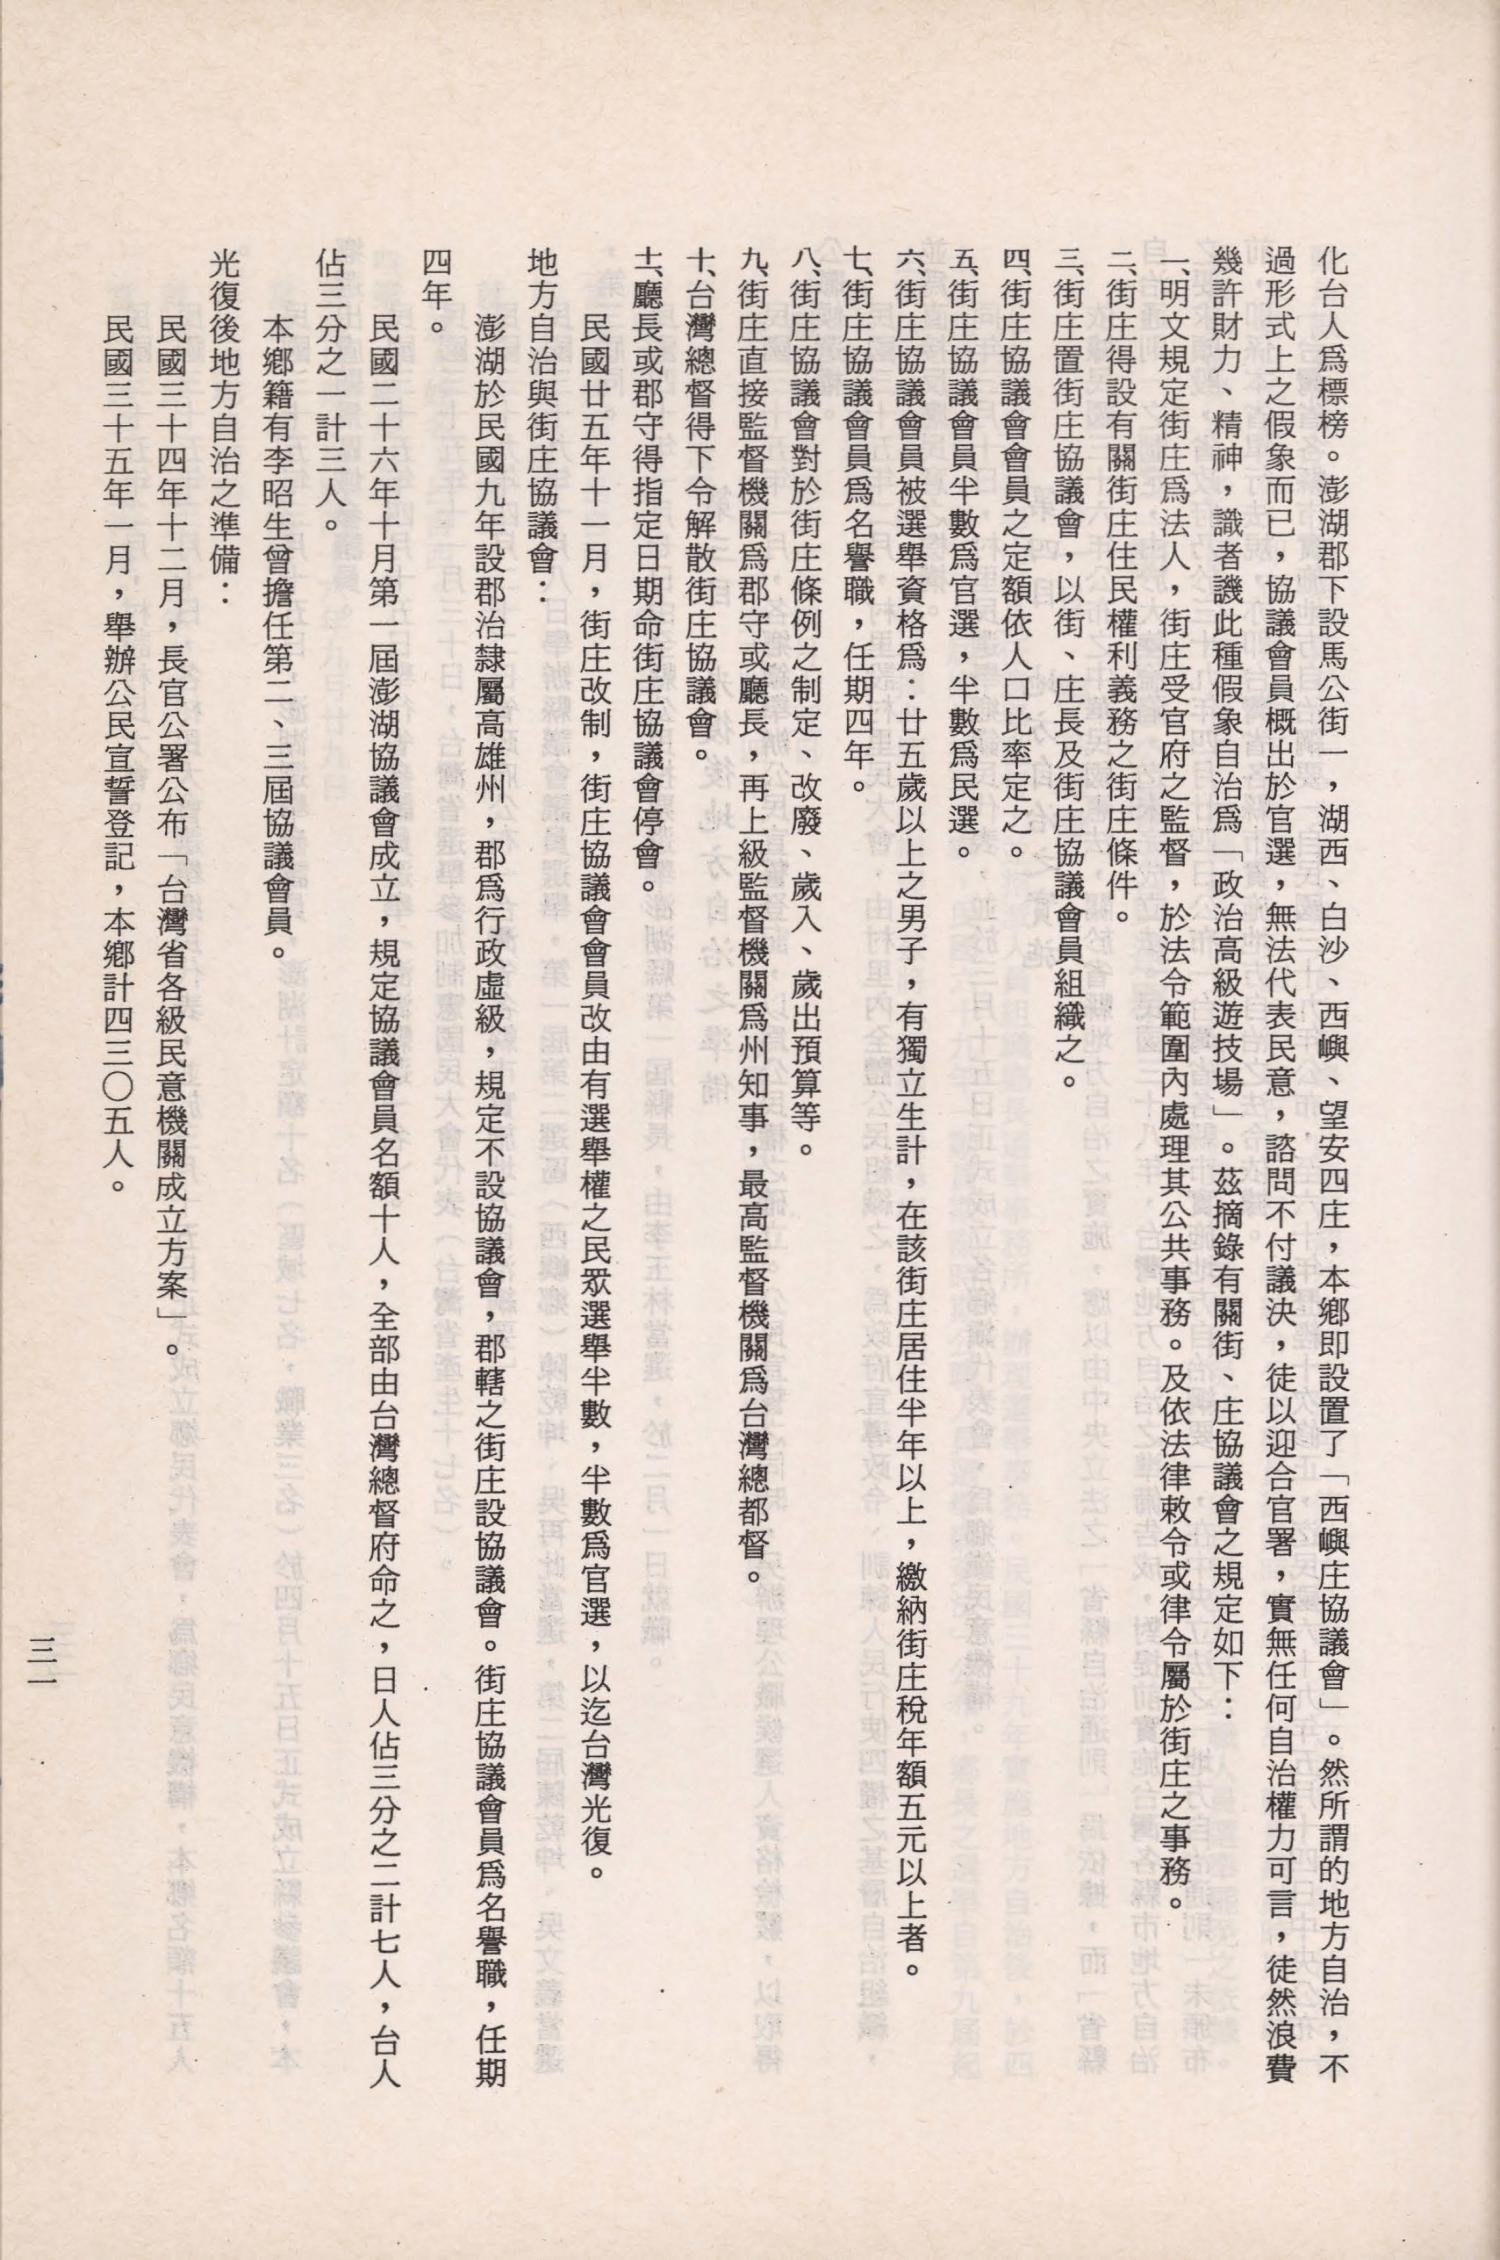 化台人爲標榜。澎湖郡下設馬公街一，湖西、白沙、西嶼、望安四庄，本鄉即設置了「西嶼庄協議會」。然所謂的地方自治，不
過形式上之假象而已，協議會員概出於官選，無法代表民意，諮問不付議決，徒以迎合官署，實無任何自治權力可言，徒然浪費
幾許財力、精神，識者譏此種假象自治爲「政治高級遊技場」。茲摘錄有關街、庄協議會之規定如下：
一、明文規定街庄爲法人，街庄受官府之監督，於法令範圍內處理其公共事務。及依法律敕令或律令屬於街庄之事務。
二、街庄得設有關街庄住民權利義務之街庄條件。
三、街庄置街庄協議會，以街、庄長及街庄協議會員組織之。
四、街庄協議會會員之定額依人口比率定之。
五、街庄協議會員半數爲官選，半數爲民選。
六、街庄協議會員被選舉資格爲：廿五歲以上之男子，有獨立生計，在該街庄居住半年以上，繳納街庄稅年額五元以上者。
七、街庄協議會員爲名譽職，任期四年。
八、街庄協議會對於街庄條例之制定、改廢、歲入、歲出預算等。
九、街庄直接監督機關爲郡守或廳長，再上級監督機關爲州知事，最高監督機關爲台灣總都督。
十、台灣總督得下令解散街庄協議會。
十一、廳長或郡守得指定日期命街庄協議會停會。
民國廿五年十一月，街庄改制，街庄協議會會員改由有選舉權之民眾選舉半數，半數爲官選，以迄台灣光復。
地方自治與街庄協議會：
澎湖於民國九年設郡治隸屬高雄州，郡爲行政虛級，規定不設協議會，郡轄之街庄設協議會。街庄協議會員爲名譽職，任期
四年。
民國二十六年十月第一屆澎湖協議會成立，規定協議會員名額十人，全部由台灣總督府命之，日人佔三分之二計七人，台人
佔三分之一計三人。
本鄉籍有李昭生曾擔任第二、三屆協議會員。
光復後地方自治之準備：
民國三十四年十二月，長官公署公布「台灣省各級民意機關成立方案」。
民國三十五年一月，舉辦公民宣誓登記，本鄉計四三〇五人。
三一